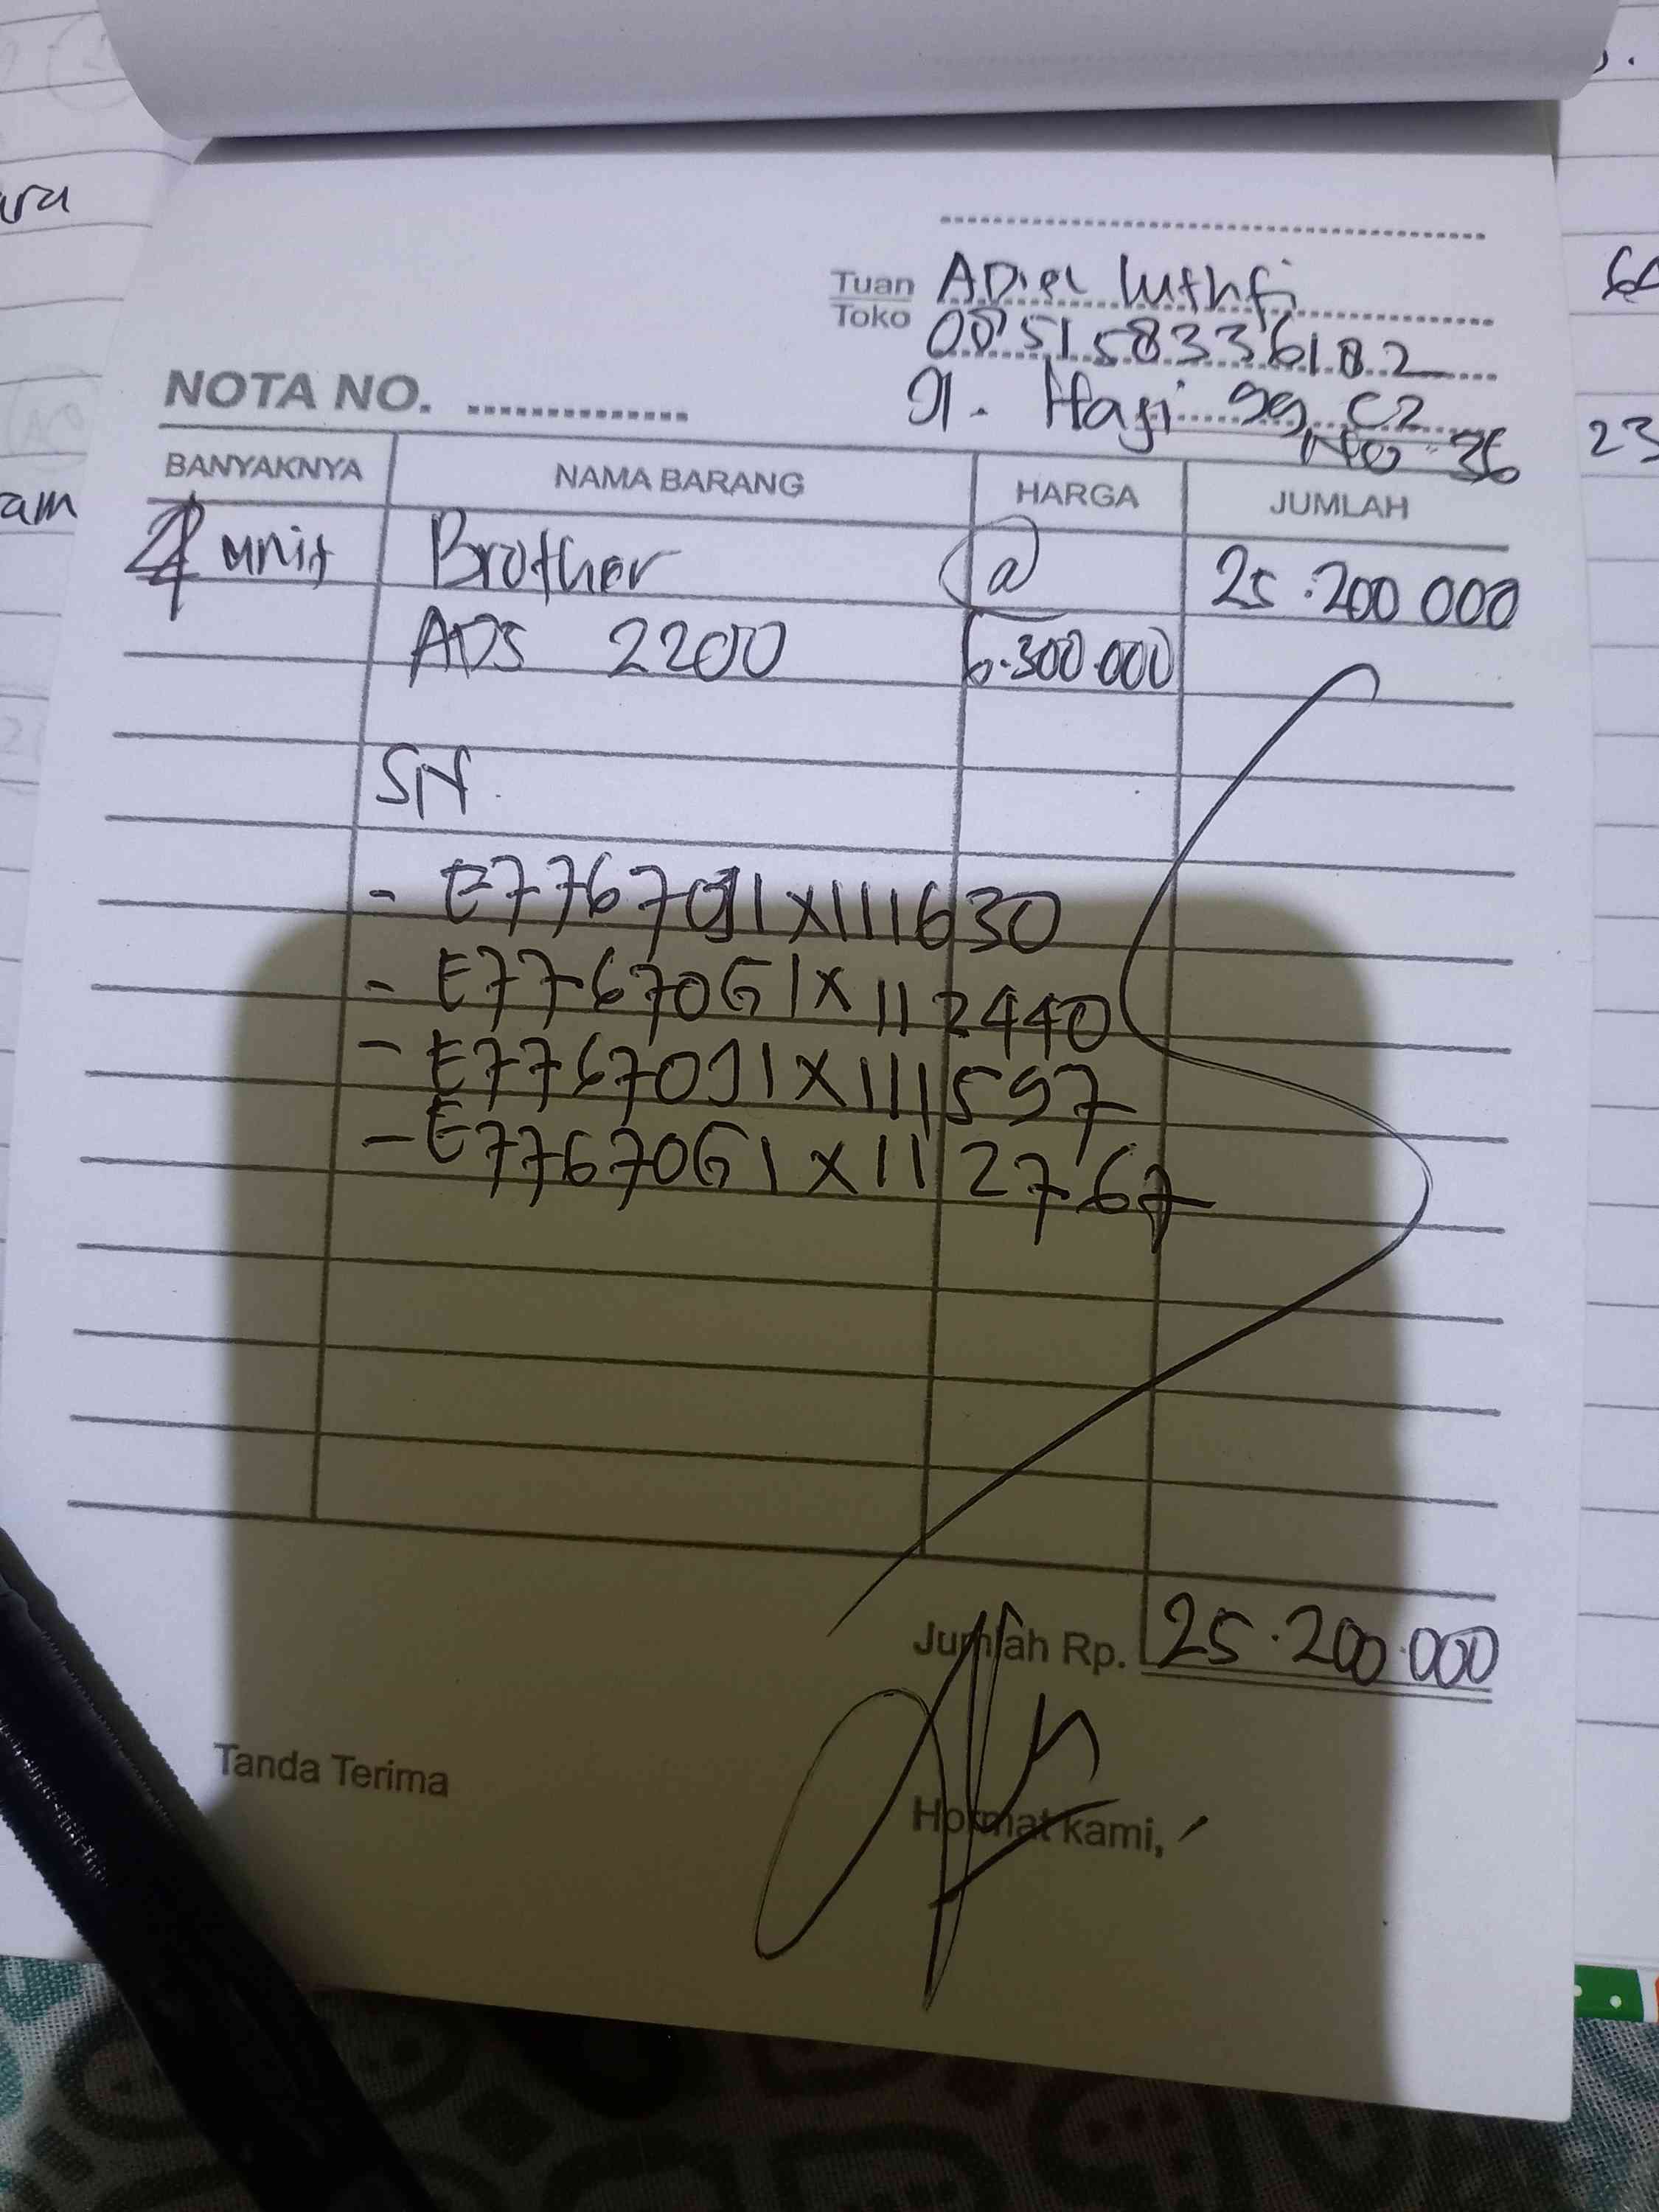 Tuan ADiel luthfi
Toko 085158336182
Jl. Haji gg C2
No 36
NOTA NO.
BANYAKNYA NAMA BARANG HARGA JUMLAH
4 unit Brother @ 25.200 000
ADS 2200 6.300.000
SN.
- E77670J1X111630
- E77670G1X112440
- E77670J1X111597
- E77670G1X112767
Jumlah Rp. 25.200.000
Tanda Terima
Hormat kami,